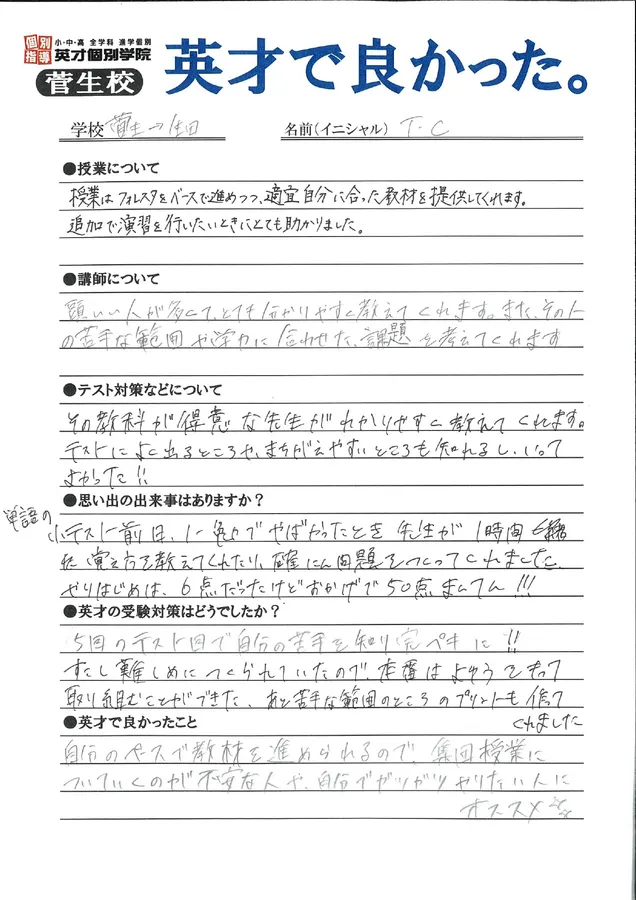 個別指導
小・中・高 全学科 進学個別
英才個別学院
菅生校
英才で良かった。
学校 菅生→生田
名前(イニシャル) T・C
●授業について
授業はフォレスタをベースで進めつつ、適宜自分に合った教材を提供してくれます。
追加で演習を行いたいときにとても助かりました。
●講師について
頭いい人が多くて、とても分かりやすく教えてくれます。また、その人
の苦手な範囲や学力に合わせた、課題を考えてくれます
●テスト対策などについて
その教科が得意な先生がわかりやすく教えてくれます。
テストによく出るところや、まちがえやすいところも知れるし、いって
よかった!!
●思い出の出来事はありますか?
単語の
小テスト前日、1-6でやばかったとき先生が1時間
覚え方を教えてくれたり、確にん問題をつくってくれました
やりはじめは、6点だったけどおかげで50点まんてん!!!
●英才の受験対策はどうでしたか?
5回のテスト回で自分の苦手を知り完ペキに!!
すこし難しめにつくられていたので、本番はよゆうをもって
取り組むことができた、あと苦手な範囲のところのプリントも作って
くれました
●英才で良かったこと
自分のペースで教材を進められるので、集団授業に
ついていくのが不安な人や、自分でガツガツやりたい人に
オススメ☆☆